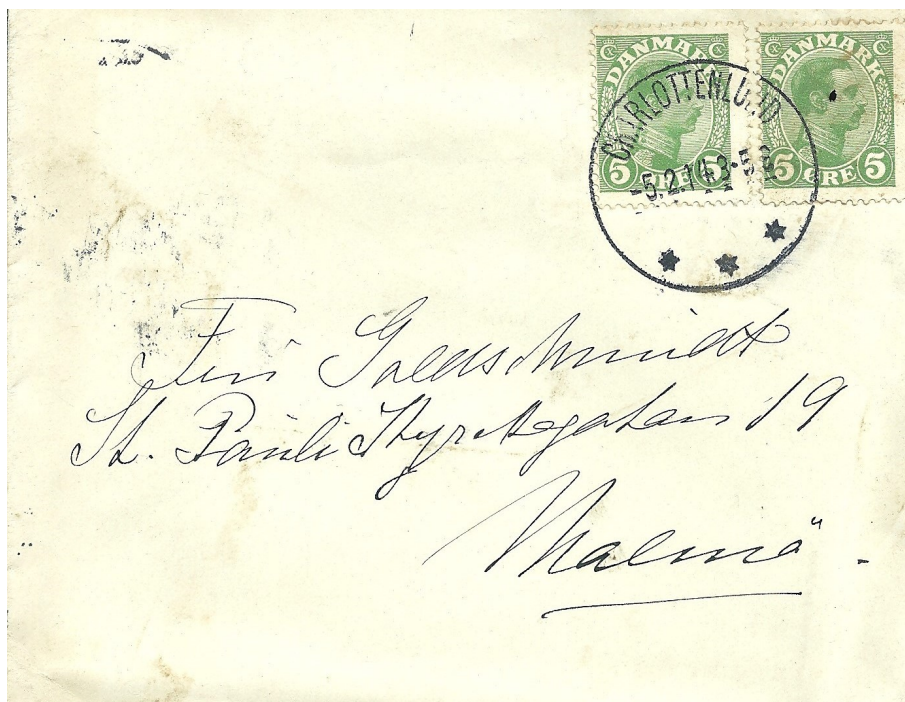 DANMARK
5 ØRE 5
DANMARK
5 ØRE 5
CHARLOTTENLUND
-5.2.14. 3-5 E
Fru Goldschmidt
St. Pauli Kyrkogatan 19
Malmö.